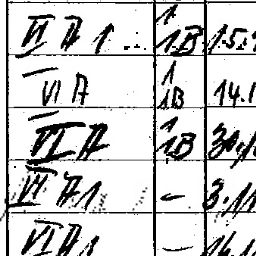 VI A 1 1 1B 1.5.
VI A 1 1B 14.1
VI A 1 1B 31.1
VI A 1 – 3.11
VI A 1 – 14.1